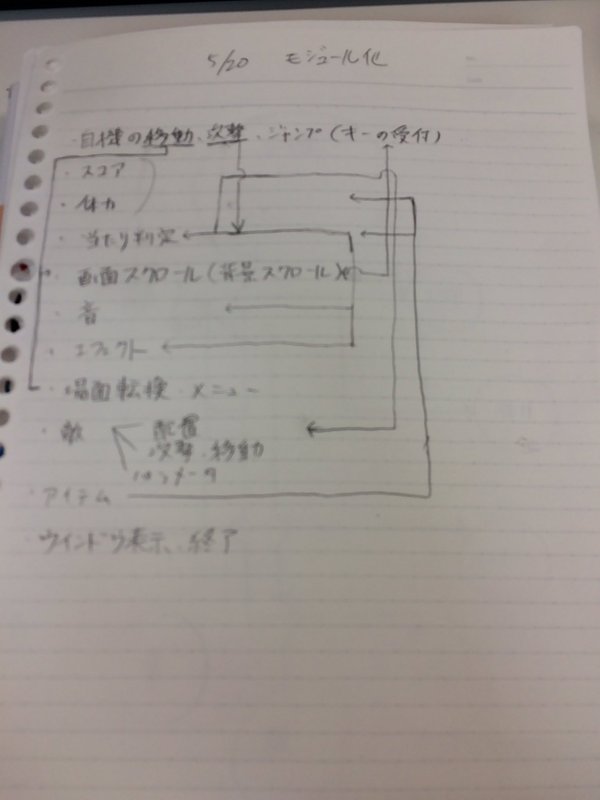 5/20 モジュール化
・自機の移動、攻撃、ジャンプ(キーの受付)
・スコア
・体力
・当たり判定
・画面スクロール(背景スクロール)
・音
・エフェクト
・場面転換・メニュー
・敵 配置
攻撃、移動
パラメータ
・アイテム
・ウインドウ表示、終了